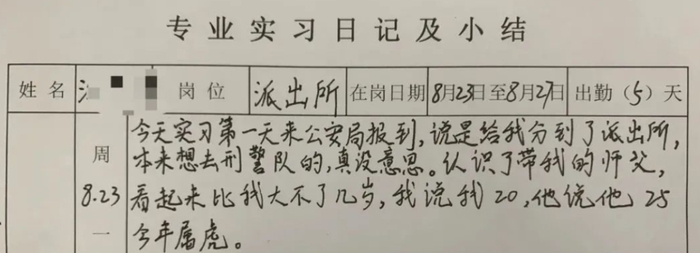 专业实习日记及小结
姓名 岗位 派出所 在岗日期 8月23日至8月27日 出勤（5）天
今天实习第一天来公安局报到，说是给我分到了派出所，
周 本来想去刑警队的，真没意思。认识了带我的师父，
8.23 看起来比我大不了几岁，我说我20，他说他25
一 今年属虎。